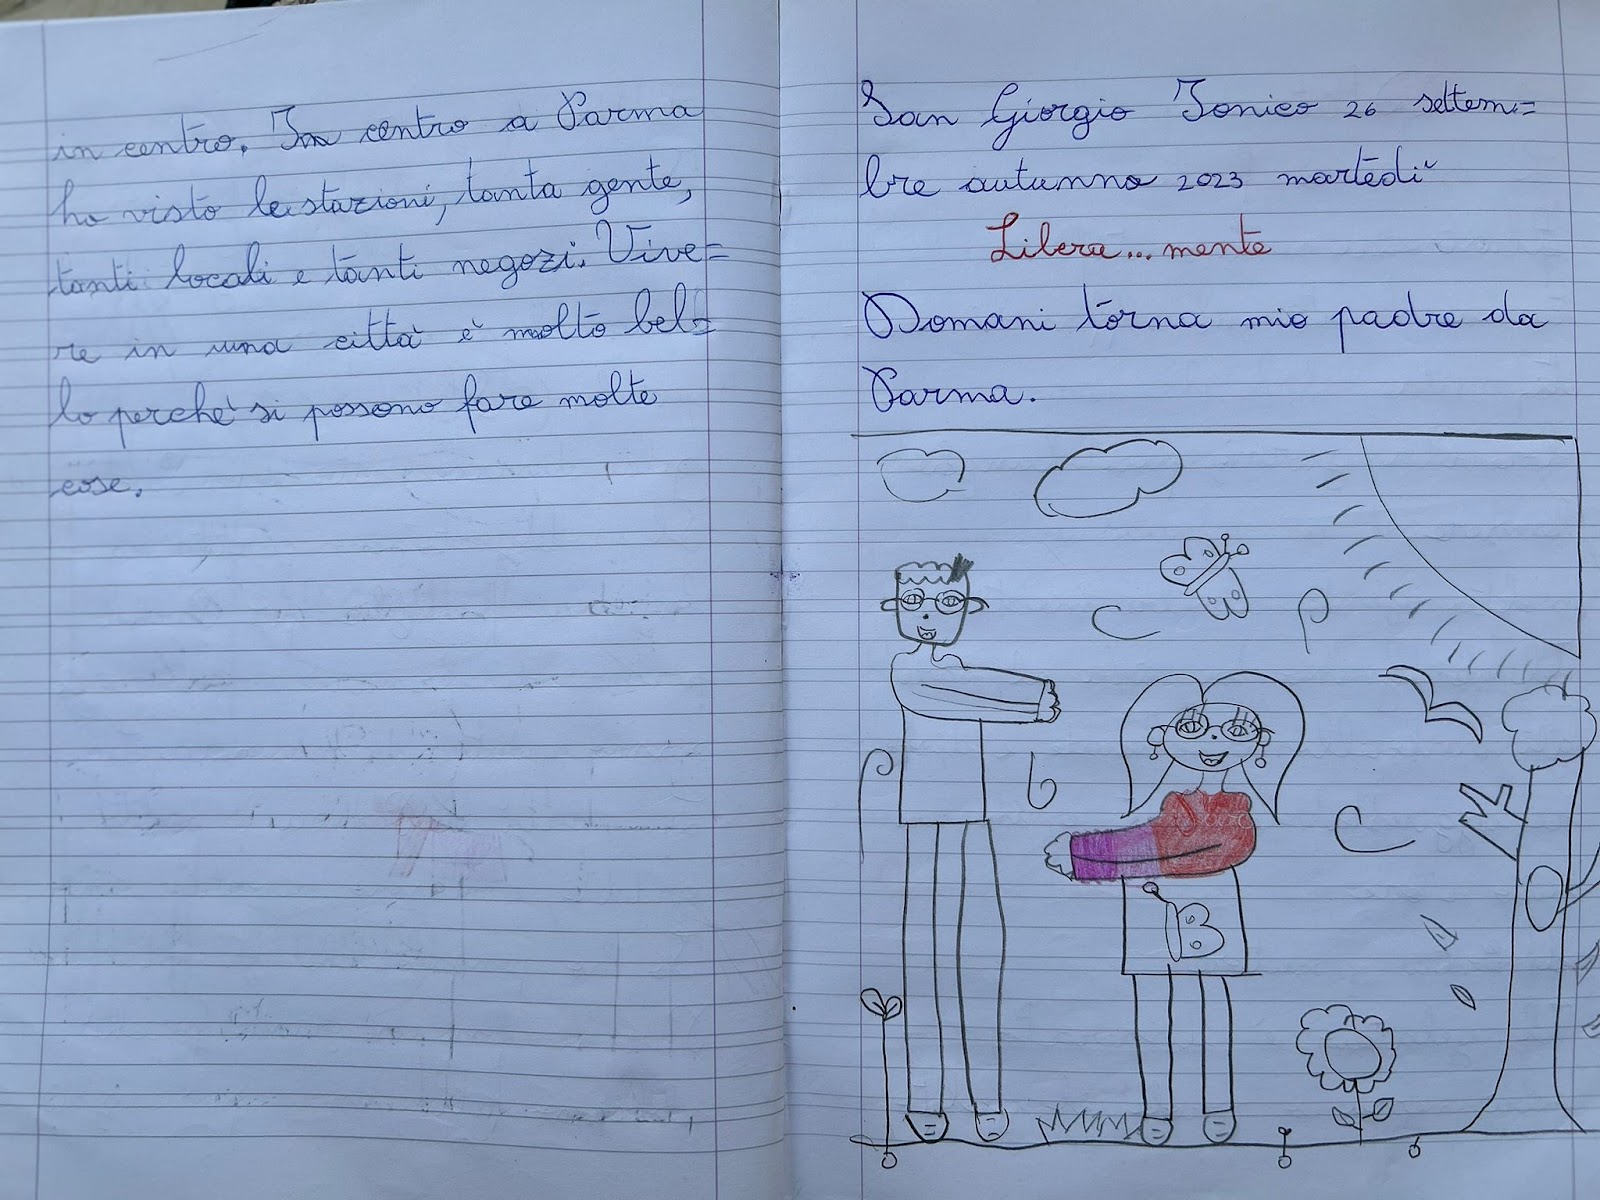 in centro. In centro a Parma
ho visto le stazioni, tanta gente,
tanti locali e tanti negozi. Vive=
re in una città è molto bel=
lo perché si possono fare molte
cose.
San Giorgio Jonico 26 settem=
bre autunno 2023 martedì
Libera... mente
Domani torna mio padre da
Parma.
B